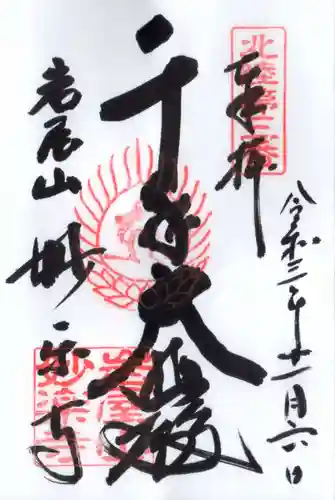 北陸第三番
奉拝
令和三年十一月六日
千手大悲殿
岩屋山 妙楽寺
岩屋山
妙楽寺